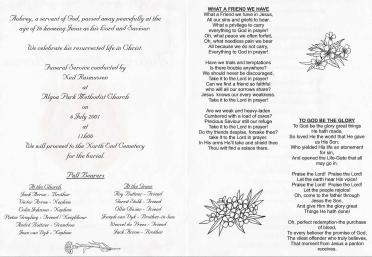 Aubrey, a servant of God, passed away peacefully at the
age of 76 knowing Jesus as his Lord and Saviour
We celebrate his resurrected life in Christ
Funeral Service conducted by
Neil Rasmussen
at
Algoa Park Methodist Church
on
6 July 2001
at
11h00
We will proceed to the North End Cemetery
for the burial.
Pall Bearers
At the Church
At the Grave
WHAT A FRIEND WE HAVE
What a Friend we have in Jesus,
All our sins and griefs to bear.
What a privilege to carry
everything to God in prayer!
Oh, what peace we often forfeit,
Oh, what needless pain we bear
All because we do not carry,
Everything to God in prayer!
Have we trials and temptations
Is there trouble anywhere?
We should never be discouraged,
Take it to the Lord in prayer!
Can we find a friend so faithful
who will all our sorrows share?
Jesus knows our every weakness,
Take it to the Lord in prayer!
Are we weak and heavy-laden
Cumbered with a load of cares?
Precious Saviour still our refuge
Take it to the Lord in prayer!
Do thy friends despise, forsake thee?
take it to the Lord in prayer!
In His arms He'll take and shield thee
Thou wilt find a solace there.
TO GOD BE THE GLORY
To God be the glory great things
He hath made,
So loved He the world that He gave
us His Son;
Who yielded His life an atonement
for sin,
And opened the Life-Gate that all
may go in.
Praise the Lord! Praise the Lord!
Let the earth hear His voice!
Praise the Lord! Praise the Lord!
Let the people rejoice!
Oh, come to the father through
Jesus the Son,
And give Him the glory great
Things He hath done!
Oh, perfect redemption-the purchase
of blood,
To every believer the promise of God;
The vilest offender who truly believes,
That moment from Jesus a pardon
receives.